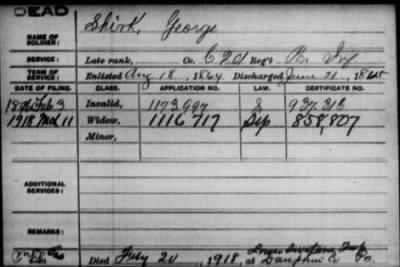 DEAD
NAME OF SOLDIER: Shirk, George
SERVICE: Late rank, Co. C 201 Reg't Pa Inf
TERM OF SERVICE: Enlisted Aug 18, 1864 Discharged June 21, 1865
DATE OF FILING. CLASS. APPLICATION NO. LAW. CERTIFICATE NO.
Feb 3 Invalid, 1173997 937,313
1918 Mch 11 Widow, 1116717 Sep 858,807
Minor,
ADDITIONAL SERVICES:
REMARKS:
Died July 20, 1918, at Lower Swatara Twp
Dauphin Co Pa.